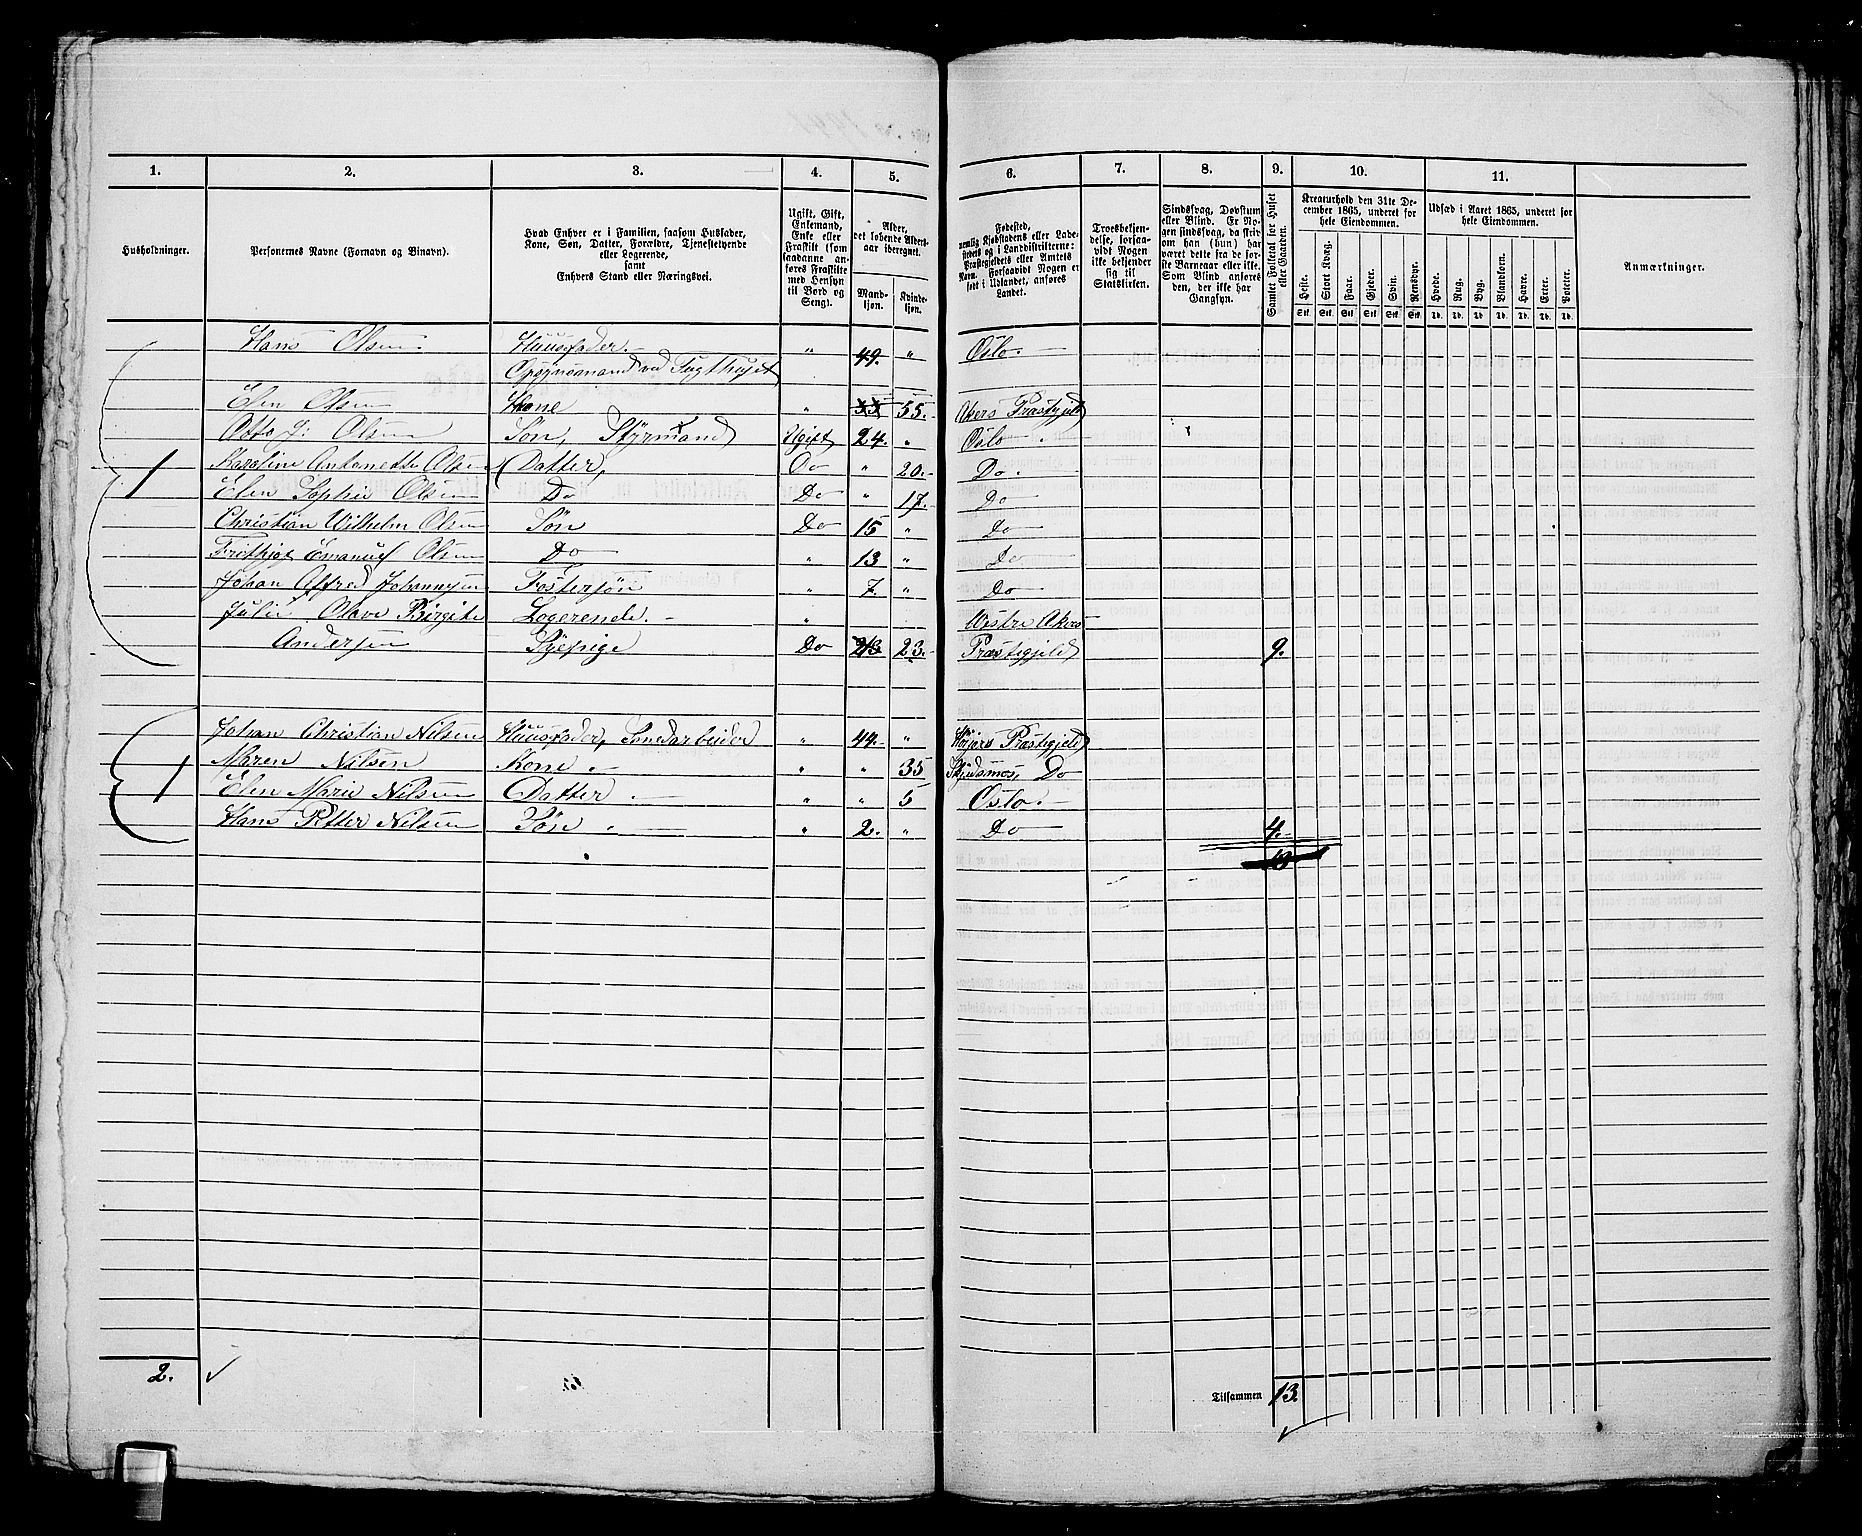 1. 2. 3. 4. 5. 6. 7. 8. 9. 10. 11.
Husholdninger.
Personernes Navne (Fornavn og Binavn).
Hvad Enhver er i Familien, saasom Husfader,
Kone, Søn, Datter, Forældre, Tjenestetyende
eller Logerende,
samt
Enhvers Stand eller Næringsvei.
Ugift, Gift,
Enkemand,
Enke eller
Fraskilt (som
saadanne an-
føres Fraskilte
med Hensyn
til Bord og
Seng).
Alder,
det løbende Alders-
aar iberegnet.
Mand-
kjøn.
Kvinde-
kjøn.
Fødested,
Troesbekjen-
delse, forsaa-
vidt Nogen
ikke bekjender
sig til
Statskirken.
Sindssvag, Døvstum
eller Blind. Er No-
gen sindssvag, da skriv
om han (hun) har
været dette fra de før-
ste Barneaar eller ikke.
Som Blind anføres
den, der ikke har
Gangsyn.
Samlet Folketal for Huset
eller Gaarden.
Kreaturhold den 31te De-
cember 1865, underet for
hele Eiendommen.
Heste. Stort Kvæg. Faar. Gjeder. Svin. Rensdyr.
Stk. Stk. Stk. Stk. Stk. Stk.
Udsæd i Aaret 1865, underet for
hele Eiendommen.
Hvede. Rug. Byg. Blandkorn. Havre. Erter. Poteter.
Td. Td. Td. Td. Td. Td. Td.
Anmærkninger.
Hans Olsen Huusfader. " 49. " Oslo.
Opsynsmand ved Tugthuset
Elen Olsen Kone " 55. Akers Præstegjeld
Otto J: Olsen Søn, Styrmand Ugift 24. " Oslo
1 Karoline Antonette Olsen Datter, Do " 20. Do.
Elen Sophie Olsen Do Do " 17. Do
Christian Wilhelm Olsen Søn Do 15 " Do
Emanuel Olsen Do " 13 " Do
Johan Alfred Johannesen Fostersøn " 7. " Do
Julie Olave Birgite Logerende. " Vestre Akers
Andersen Syepige Do 23. Præstegjeld 9.
Johan Christian Nilsen Huusfader, " 44. " Præstegjeld
Maren Nilsen Kone " " 35 Skjedsmos, Do
1 Elen Marie Nilsen Datter " " 5 Oslo.
Hans Petter Nilsen Søn " 2. " Do 4.
2. Tilsammen 13.